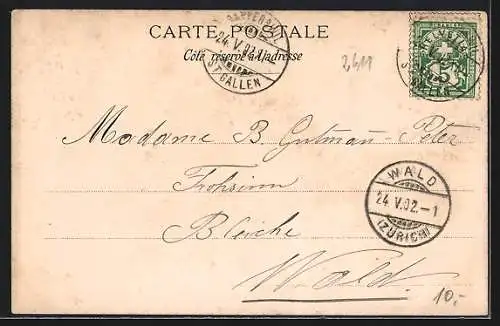 CARTE POSTALE
Côté réservé à l'adresse
24.V.02.
ST. GALLEN
HELVETIA
5
2611
Madame B. Gutmann-Peter
Frohsinn
Bleiche
Wald.
WALD
24.V.02.-1
(ZÜRICH)
10.-